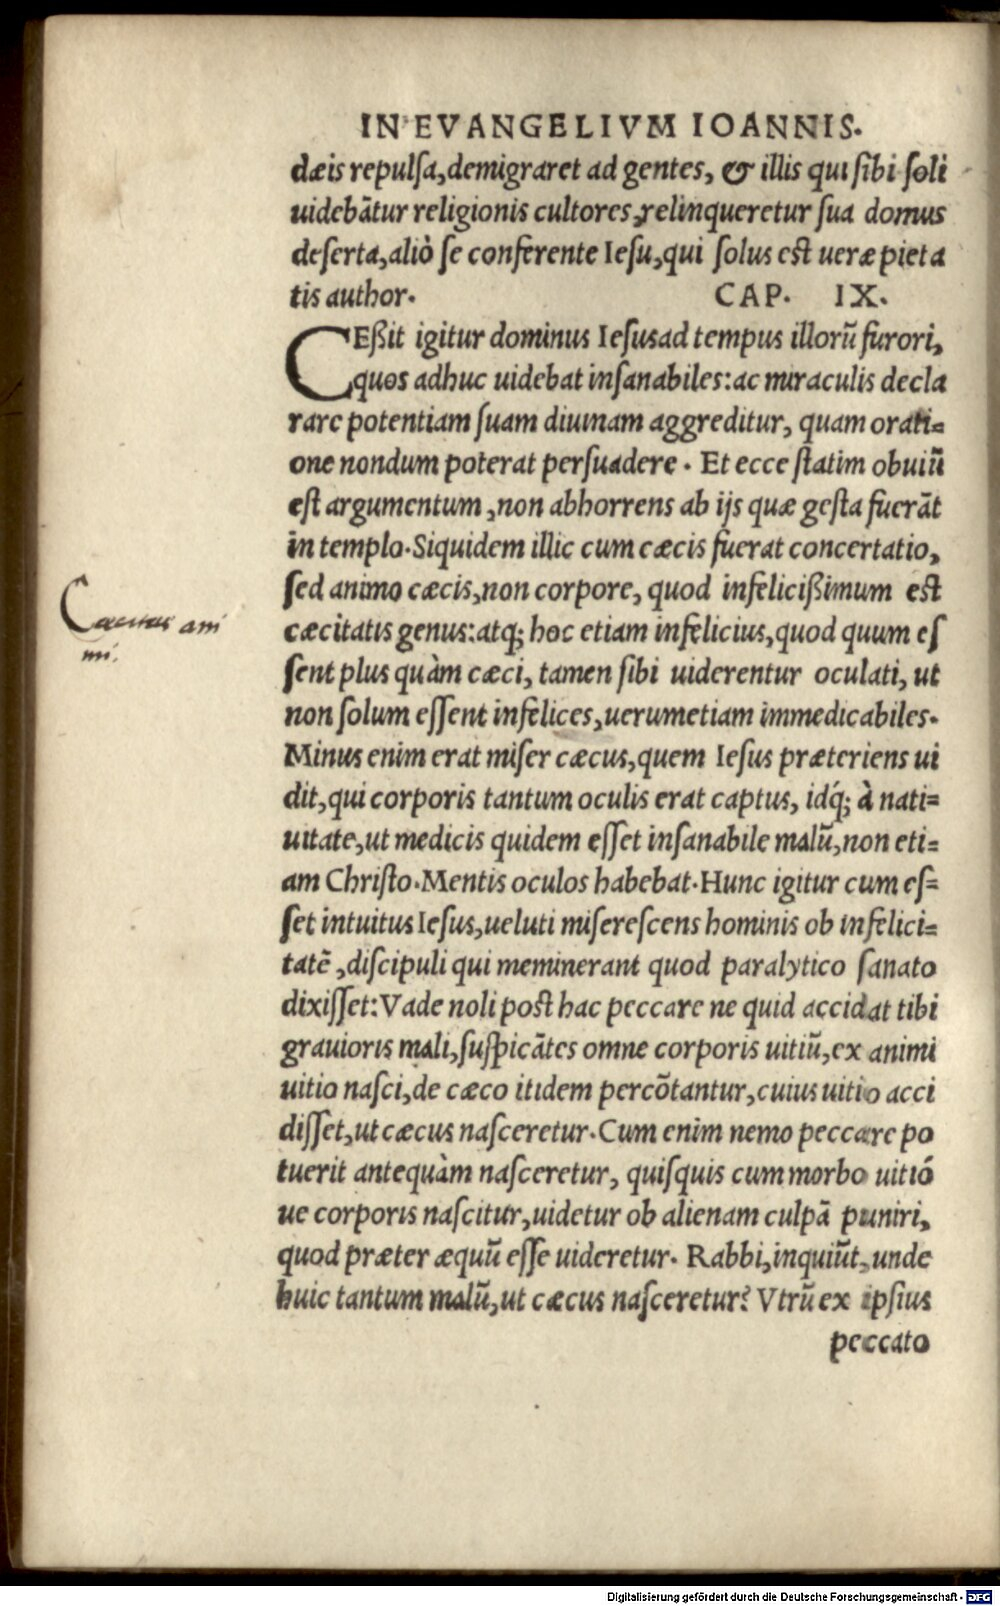 IN EVANGELIVM IOANNIS.
dæis repulsa, demigraret ad gentes, & illis qui sibi soli
uidebātur religionis cultores, relinqueretur sua domus
deserta, aliò se conferente Iesu, qui solus est ueræ pieta
tis author. CAP. IX.
CEßit igitur dominus Iesus ad tempus illorū furori,
quos adhuc uidebat insanabiles: ac miraculis decla
rare potentiam suam diuinam aggreditur, quam orati=
one nondum poterat persuadere. Et ecce statim obuiū
est argumentum, non abhorrens ab ijs quæ gesta fuerāt
in templo. Siquidem illic cum cæcis fuerat concertatio,
sed animo cæcis, non corpore, quod infelicißimum est
cæcitatis genus: atq; hoc etiam infelicius, quod quum es
sent plus quàm cæci, tamen sibi uiderentur oculati, ut
non solum essent infelices, uerumetiam immedicabiles.
Minus enim erat miser cæcus, quem Iesus præteriens ui
dit, qui corporis tantum oculis erat captus, idq́; à nati=
uitate, ut medicis quidem esset insanabile malū, non eti=
am Christo. Mentis oculos habebat. Hunc igitur cum es=
set intuitus Iesus, ueluti miserescens hominis ob infelici=
tatē, discipuli qui meminerant quod paralytico sanato
dixisset: Vade noli post hac peccare ne quid accidat tibi
grauioris mali, suspicātes omne corporis uitiū, ex animi
uitio nasci, de cæco itidem percōtantur, cuius uitio acci
disset, ut cæcus nasceretur. Cum enim nemo peccare po
tuerit antequàm nasceretur, quisquis cum morbo uitió
ue corporis nascitur, uidetur ob alienam culpā puniri,
quod præter æquū esse uideretur. Rabbi, inquiūt, unde
huic tantum malū, ut cæcus nasceretur? Vtrū ex ipsius
peccato
Caecitas ani
mi.
Digitalisierung gefördert durch die Deutsche Forschungsgemeinschaft - DFG